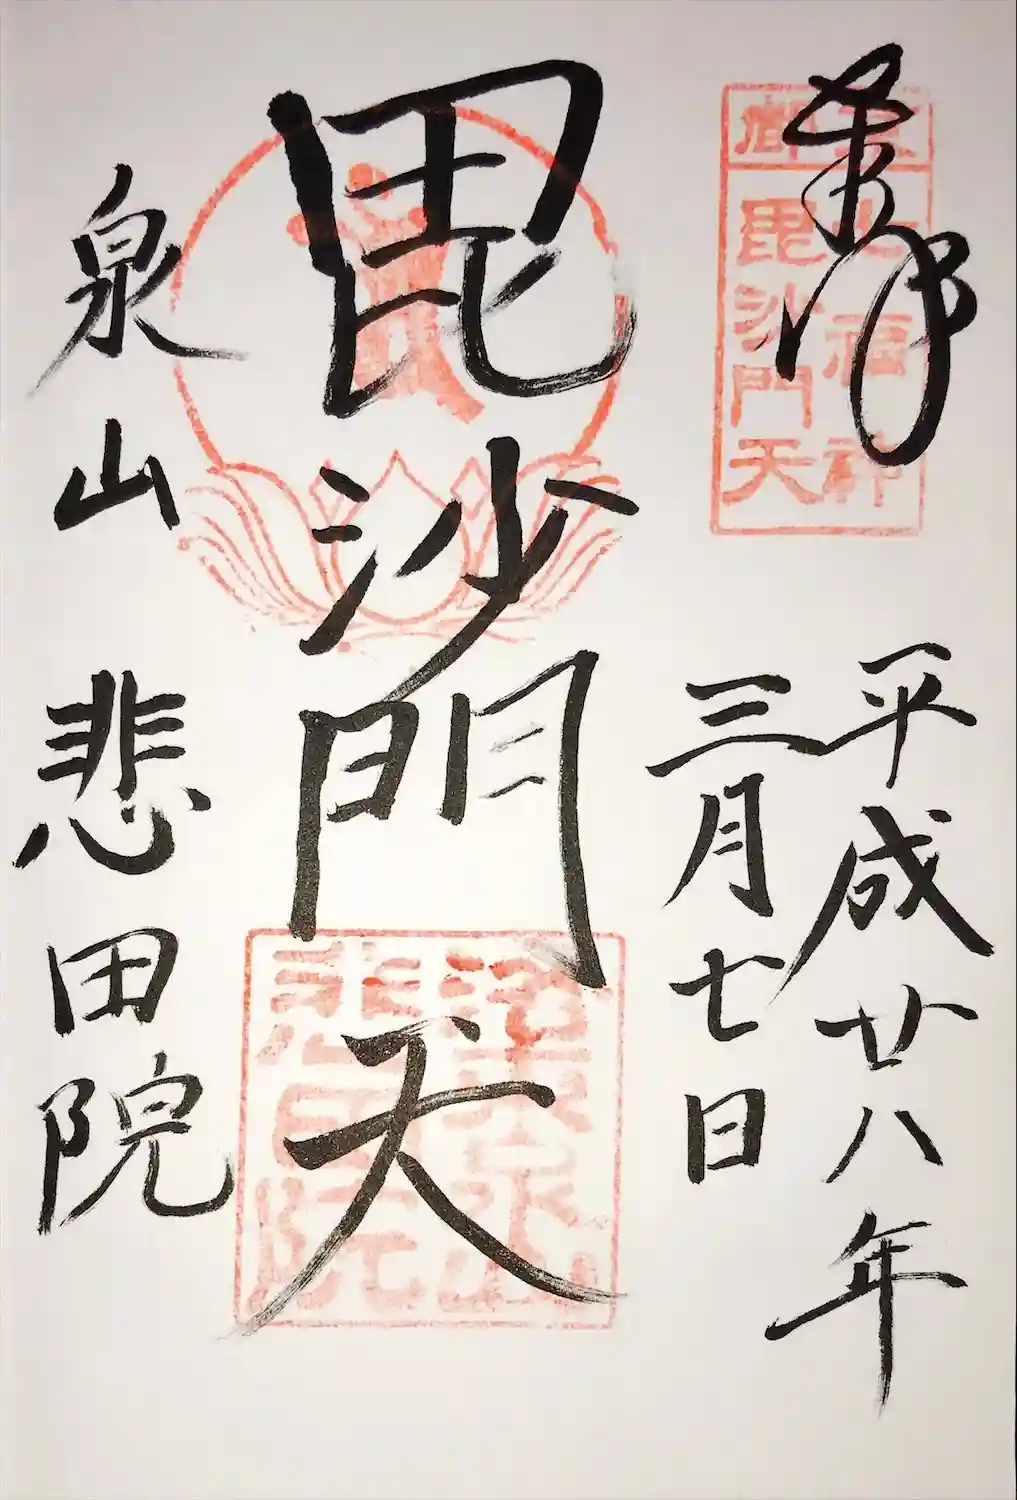 奉拝
平成廿八年
三月七日
毘沙門天
泉山
悲田院
京都
七福神
毘沙門天
泉山
悲田院